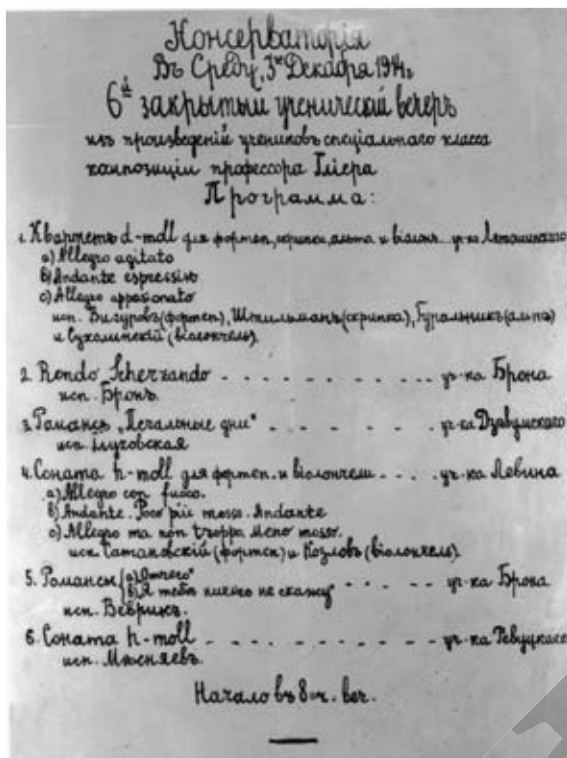 Консерваторія
Въ Среду, 3го Декабря 1914г.
6й закрытый ученическій вечеръ
изъ произведеній учениковъ спеціальнаго класса
композиціи профессора Гліера
Программа:
1. Квартетъ d-moll для фортеп., скрипки, альта и віолонч. уч-ка Лятошинскаго
a) Allegro agitato
b) Andante espressivo
c) Allegro appasionato
исп. Вигуровъ (фортеп), Штильманъ (скрипка), Гуральникъ (альтъ)
и Сухолинскій (віолончель).
2. Rondo Scherzando - - - - - - - - - уч-ка Брона
исп. Бронъ.
3. Романсъ „Печальные дни" - - - - - - уч-ка
исп. Глуховская
4. Соната h-moll для фортеп. и віолончели - - - - уч-ка Левина
a) Allegro con fuoco.
b) Andante. Poco più mosso. Andante
c) Allegro ma non troppo. Meno mosso.
исп. (фортеп) и Козловъ (віолончель).
5. Романсы a) Отчего"
b) Я тебѣ ничего не скажу" - - - - уч-ка Брона
исп. Веврикъ.
6. Соната h-moll - - - - - - - - - уч-ка Ревуцкаго
исп. Мѣсняевъ.
Начало въ 8 ч. веч.